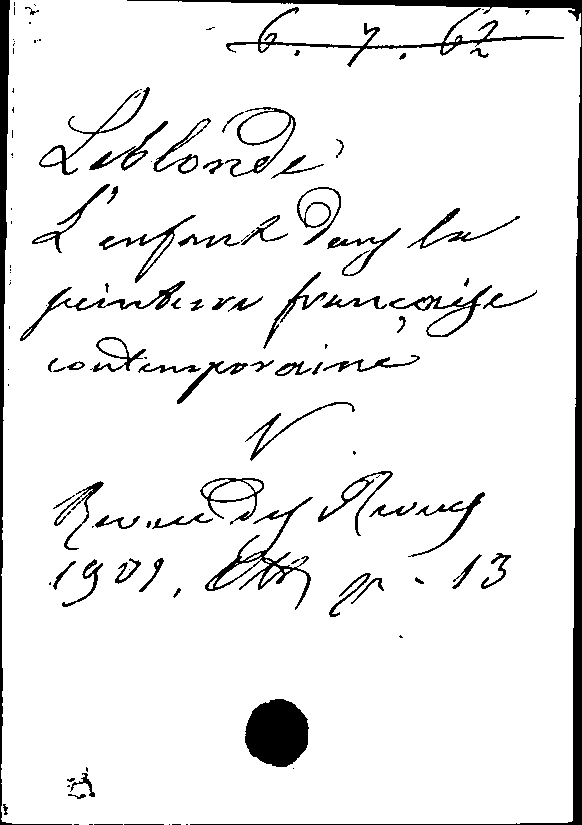 6. 7. 62
Leblonde
L'enfant dans la
peinture française
contemporaine
V
Revue des Revues
1901, p. 13